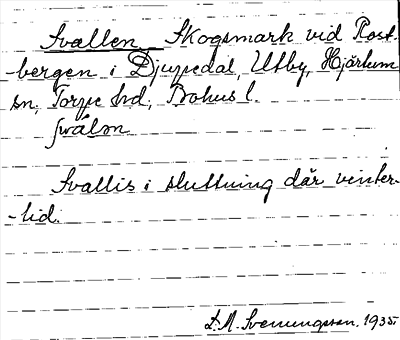 Svallen Skogsmark vid Rost-
bergen i Djupedal, Utby, Hjärtum
sn, Torpe hd, Bohus l.
svál<u>ə</u>n
Svallis i sluttning där vinter-
-tid.
S. A. Svenungsson. 1935.